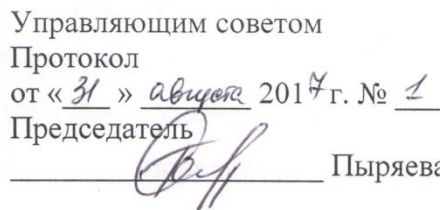 Управляющим советом
Протокол
от «31» августа 2017 г. № 1
Председатель
Пыряева